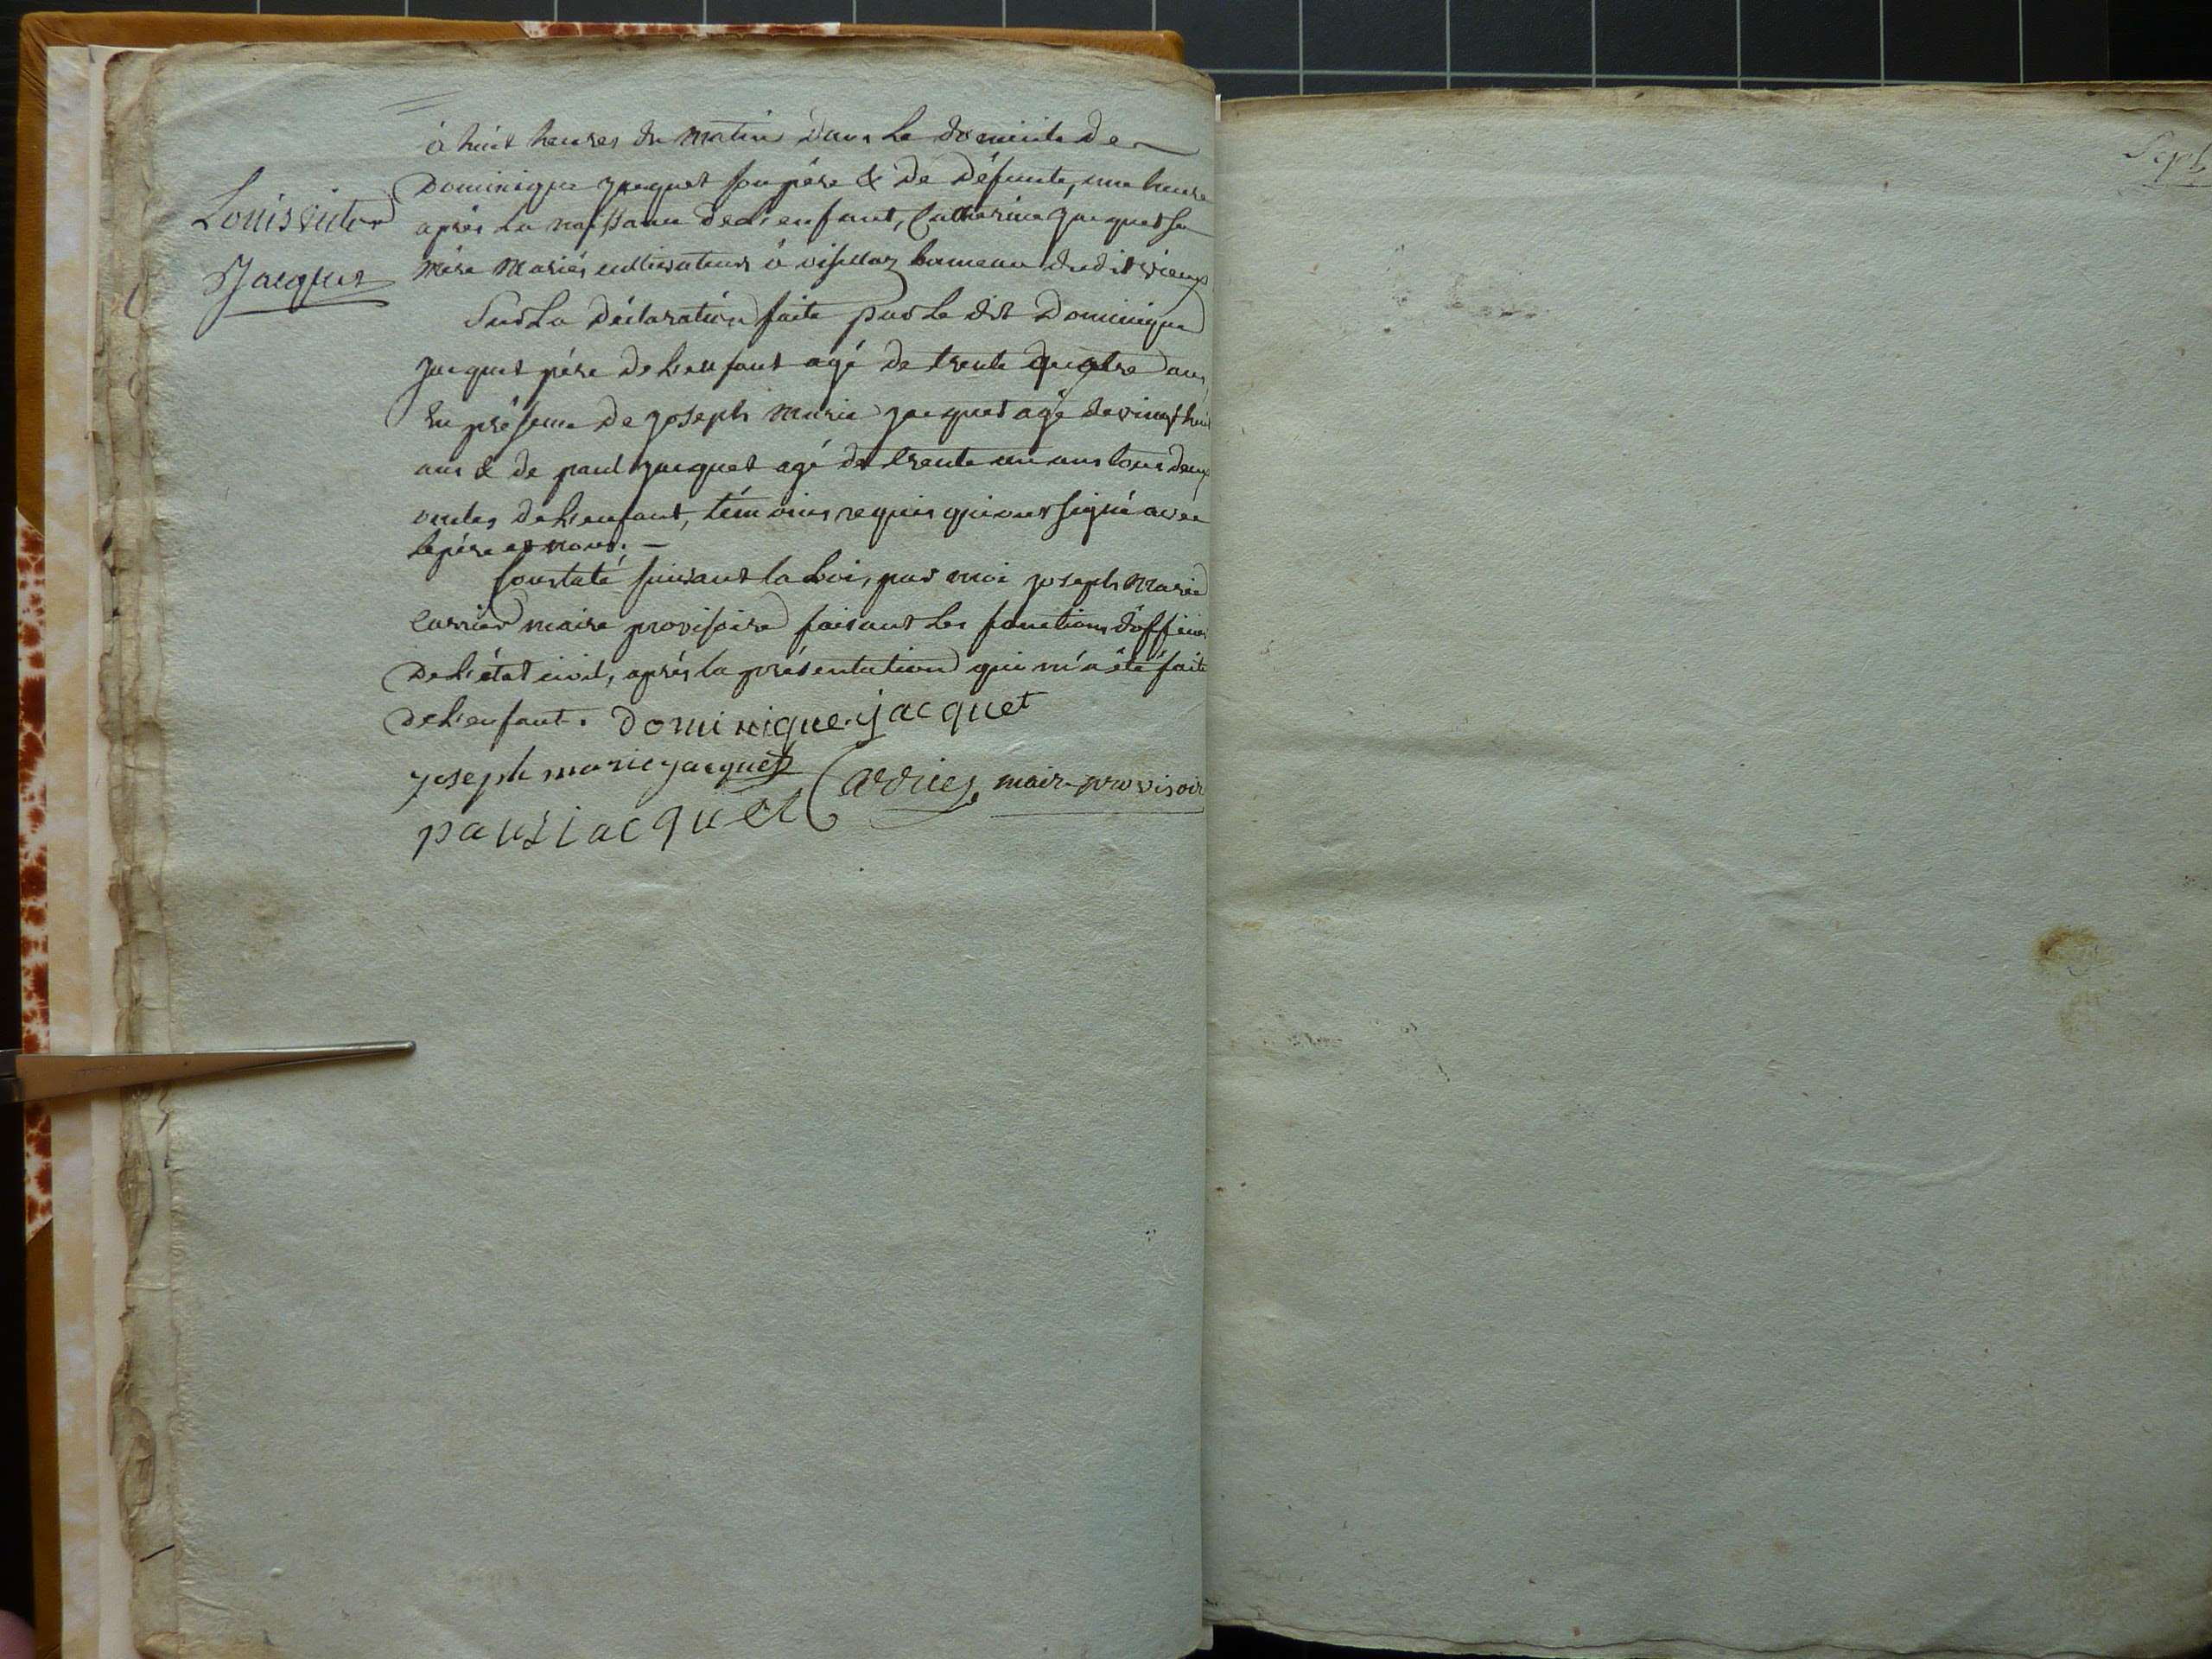 à huit heures du matin dans le domicile de
Dominique jacquet son père & de défunte, une heure
après la naissance de l'enfant, Catherine jacquet sa
mère mariés cultivateurs à visillaz hameau dudit vieux
Louis victor
Jacquet
Sur la déclaration faite par le dit Dominique
jacquet père de l'enfant agé de trente quatre ans,
En présence de joseph marie jacquet agé de vingt huit
ans & de paul jacquet agé de trente un ans tous deux
oncles de l'enfant, témoins requis qui ont signé avec
le père et nous. —
Constaté suivant la loi, par moi joseph marie
Carrier maire provisoire faisant les fonctions d'officier
de l'état civil, après la présentation qui m'a été faite
de l'enfant. dominique jacquet
joseph marie jacquet
Carrier, maire provisoir
paul jacquet
Sept